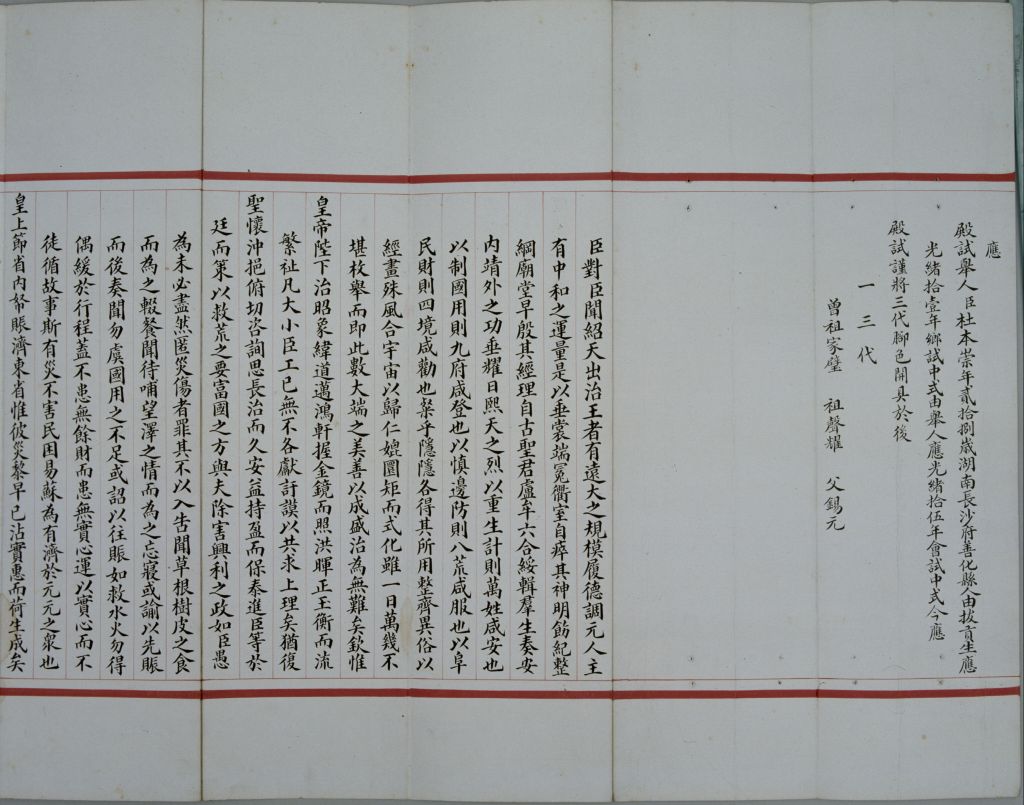 應
殿試舉人臣杜本崇年貳拾捌歲湖南長沙府善化縣人由拔貢生應
光緒拾壹年鄉試中式由舉人應光緒拾伍年會試中式今應
殿試謹將三代腳色開具於後
一三代
曾祖家璧 祖聲耀 父錫元
臣對臣聞紹天出治王者有遠大之規模履德調元人主
有中和之運量是以垂裳端冕衢室自瘁其神明飭紀整
綱廟堂早殷其經理自古聖君盧牟六合綏輯羣生奏安
內靖外之功垂耀日熙天之烈以重生計則萬姓咸安也
以制國用則九府咸登也以慎邊防則八荒咸服也以阜
民財則四境咸勸也粲乎隱隱各得其所用整齊異俗以
經畫殊風合宇宙以歸仁媲圜矩而式化雖一日萬幾不
堪枚舉而即此數大端之美善以成盛治為無難矣欽惟
皇帝陛下治昭象緯道邁鴻軒握金鏡而照洪暉正玉衡而流
繁祉凡大小臣工已無不各獻訏謨以共求上理矣猶復
聖懷沖挹俯切咨詢思長治而久安益持盈而保泰進臣等於
廷而策以救荒之要富國之方與夫除害興利之政如臣愚
為未必盡然匿災傷者罪其不以入告聞草根樹皮之食
而為之輟餐聞待哺望澤之情而為之忘寢或諭以先賑
而後奏聞勿虞國用之不足或詔以往賑如救水火勿得
偶緩於行程蓋不患無餘財而患無實心運以實心而不
徒循故事斯有災不害民困易蘇為有濟於元元之衆也
皇上節省內帑賑濟東省惟彼災黎早已沾實惠而荷生成矣